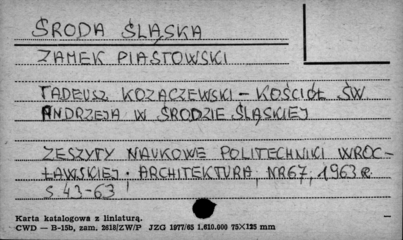 ŚRODA ŚLĄSKA
ZAMEK PIASTOWSKI
TADEUSZ KOZACZEWSKI - KOŚCIÓŁ ŚW.
ANDRZEJA W ŚRODZIE ŚLĄSKIEJ
ZESZYTY NAUKOWE POLITECHNIKI WROC-
ŁAWSKIEJ. ARCHITEKTURA, NR 67, 1963 R.
S 43-63
Karta katalogowa z liniaturą.
CWD — B-15b, zam. 2618/ZW/P JZG 1977/65 1.610.000 75×125 mm